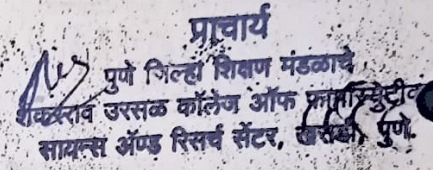 प्राचार्य
पुणे जिल्हा शिक्षण मंडळाचे
शंकरराव उरसळ कॉलेज ऑफ फार्मास्युटीकल
सायन्स ॲण्ड रिसर्च सेंटर, खराडी, पुणे.